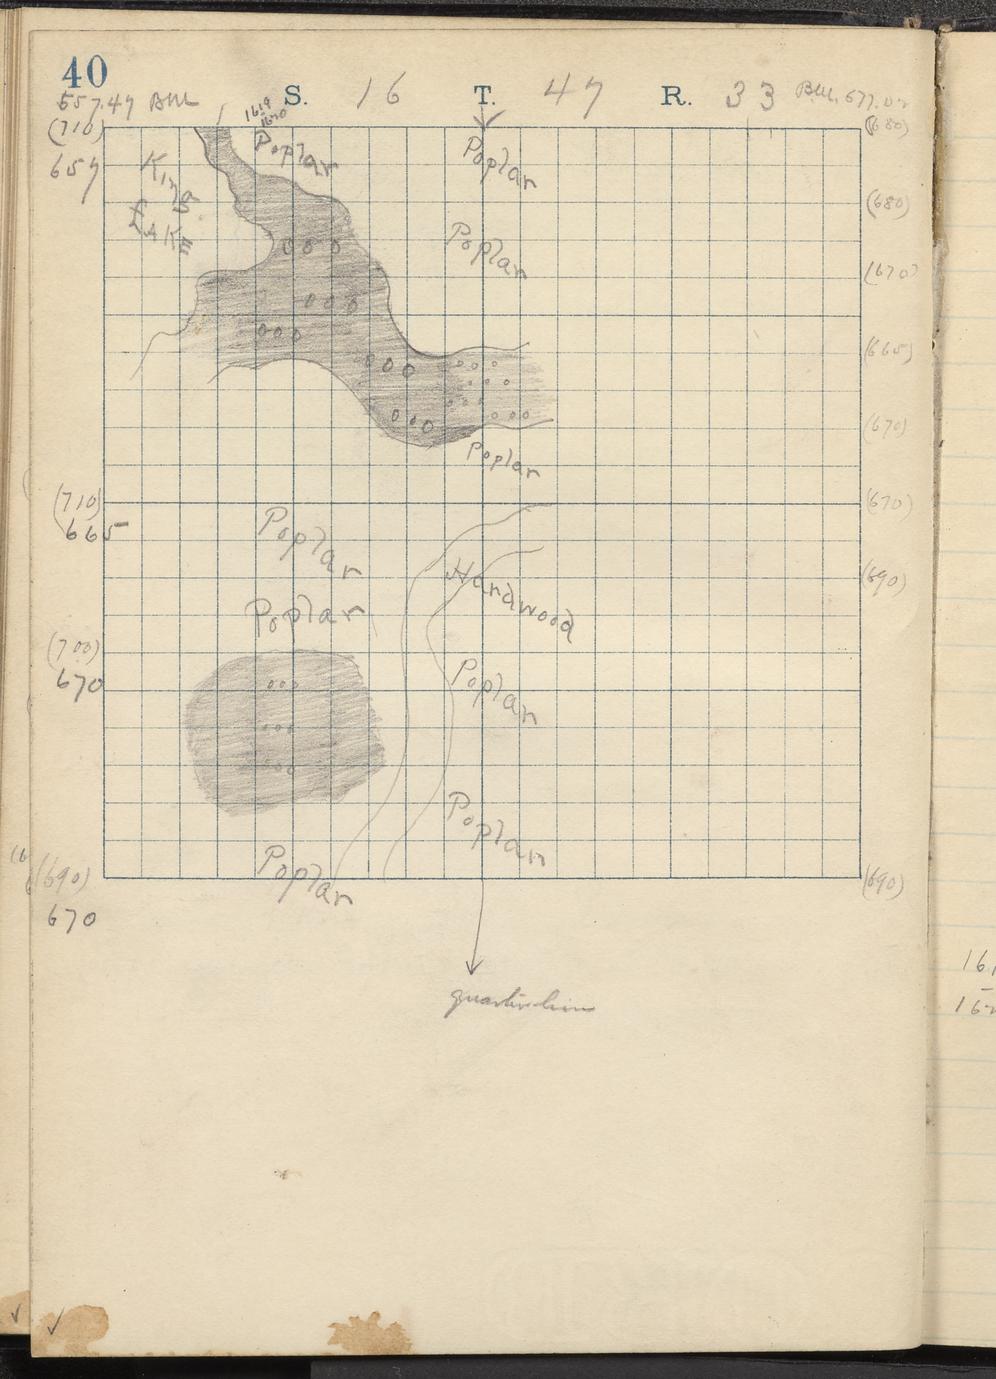 40
557.47 BM S. 16 T. 47 R. 33 BM. 677.02
(710) (680)
657
1619
1620
Poplar
Poplar
King
Lake
(680)
Poplar
(670)
(665)
(670)
Poplar
(710) (670)
665
Poplar
Hardwood
(690)
Poplar
(700)
670
Poplar
Poplar
Poplar
(690) (690)
670
161
16